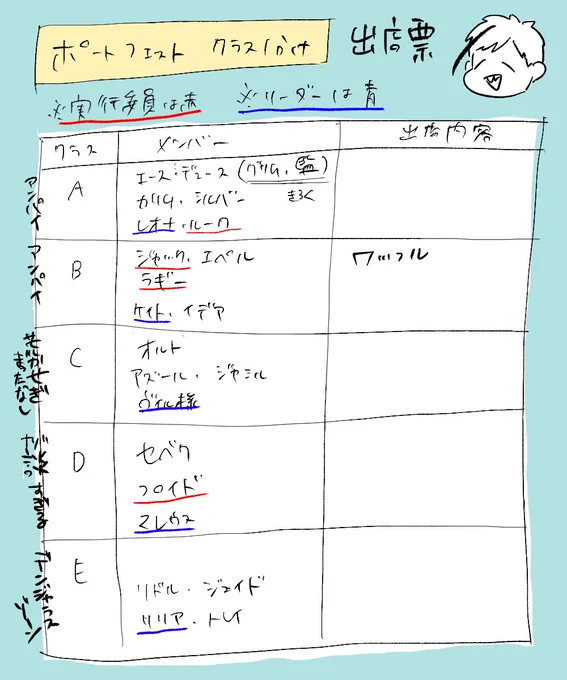 ポートフェスト クラスわけ 出店票
※実行委員は赤 ※リーダーは青
クラス メンバー 出店内容
アンパイ
A
エース・デュース (グリム、監)
カリム・シルバー きろく
レオナ・ルーク
アンパイ
B
ジャック・エペル
ラギー
ケイト・イデア
ワッフル
C
オルト
アズール・ジャミル
ヴィル様
まだなし
D
セベク
フロイド
マレウス
すぎる
デンジャラスゾーン
E
リドル・ジェイド
リリア・トレイ